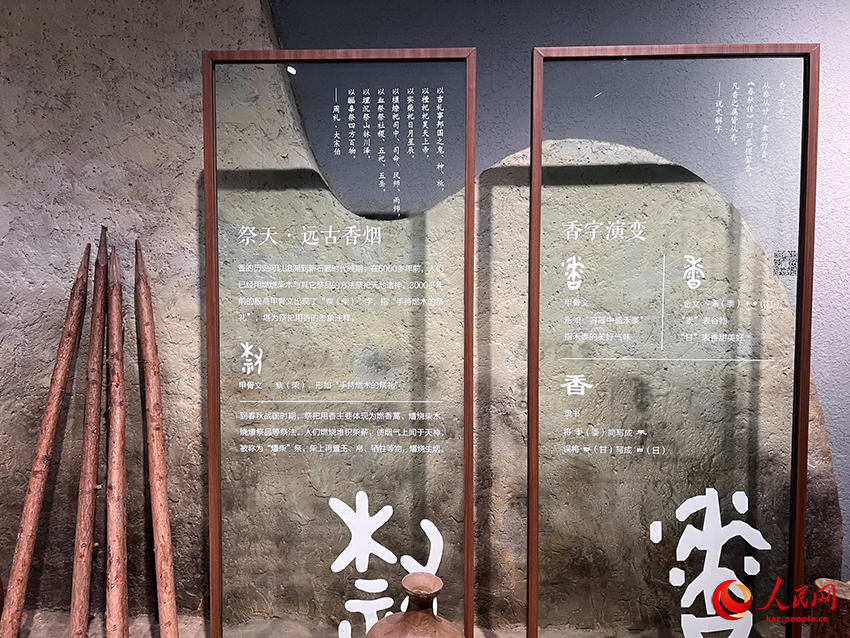 以吉礼事邦国之鬼、神、祇,
以禋祀祀昊天上帝,
以实柴祀日月星辰,
以槱燎祀司中、司命、风师、雨师,
以血祭祭社稷、五祀、五岳,
以埋沉祭山林川泽,
以疈辜祭四方百物,
——周礼·大宗伯
祭天·远古香烟
香的历史可以追溯到新石器时代晚期,在6000多年前,人们
已经用燃烧柴木与其它祭品的方法祭祀天地诸神。3000多年
前的殷商甲骨文出现了“祡(柴)”字,指“手持燃木的祭
礼”,堪为祭祀用香的形象注释。
甲骨文 祡(柴),形如“手持燃木的祭礼”
到春秋战国时期,祭祀用香主要体现为燃香蒿、燔烧柴木、
烧燎祭品等祭法,人们燃烧堆积柴薪,使烟气上闻于天神,
被称为“燔柴”祭,柴上再置玉、帛、牺牲等物,燔烧生烟。
香,芳也。
从黍从甘。
《春秋传》曰:黍稷馨香。
凡香之属皆从香。
——说文解字
香字演变
甲骨文
形如“容器中盛禾黍”
指禾黍的美好气味
金文
“黍”表谷物
“甘”表香甜美好
香
隶书
将(黍)简写成
误将(甘)写成(日)
人民网
kar.people.cn